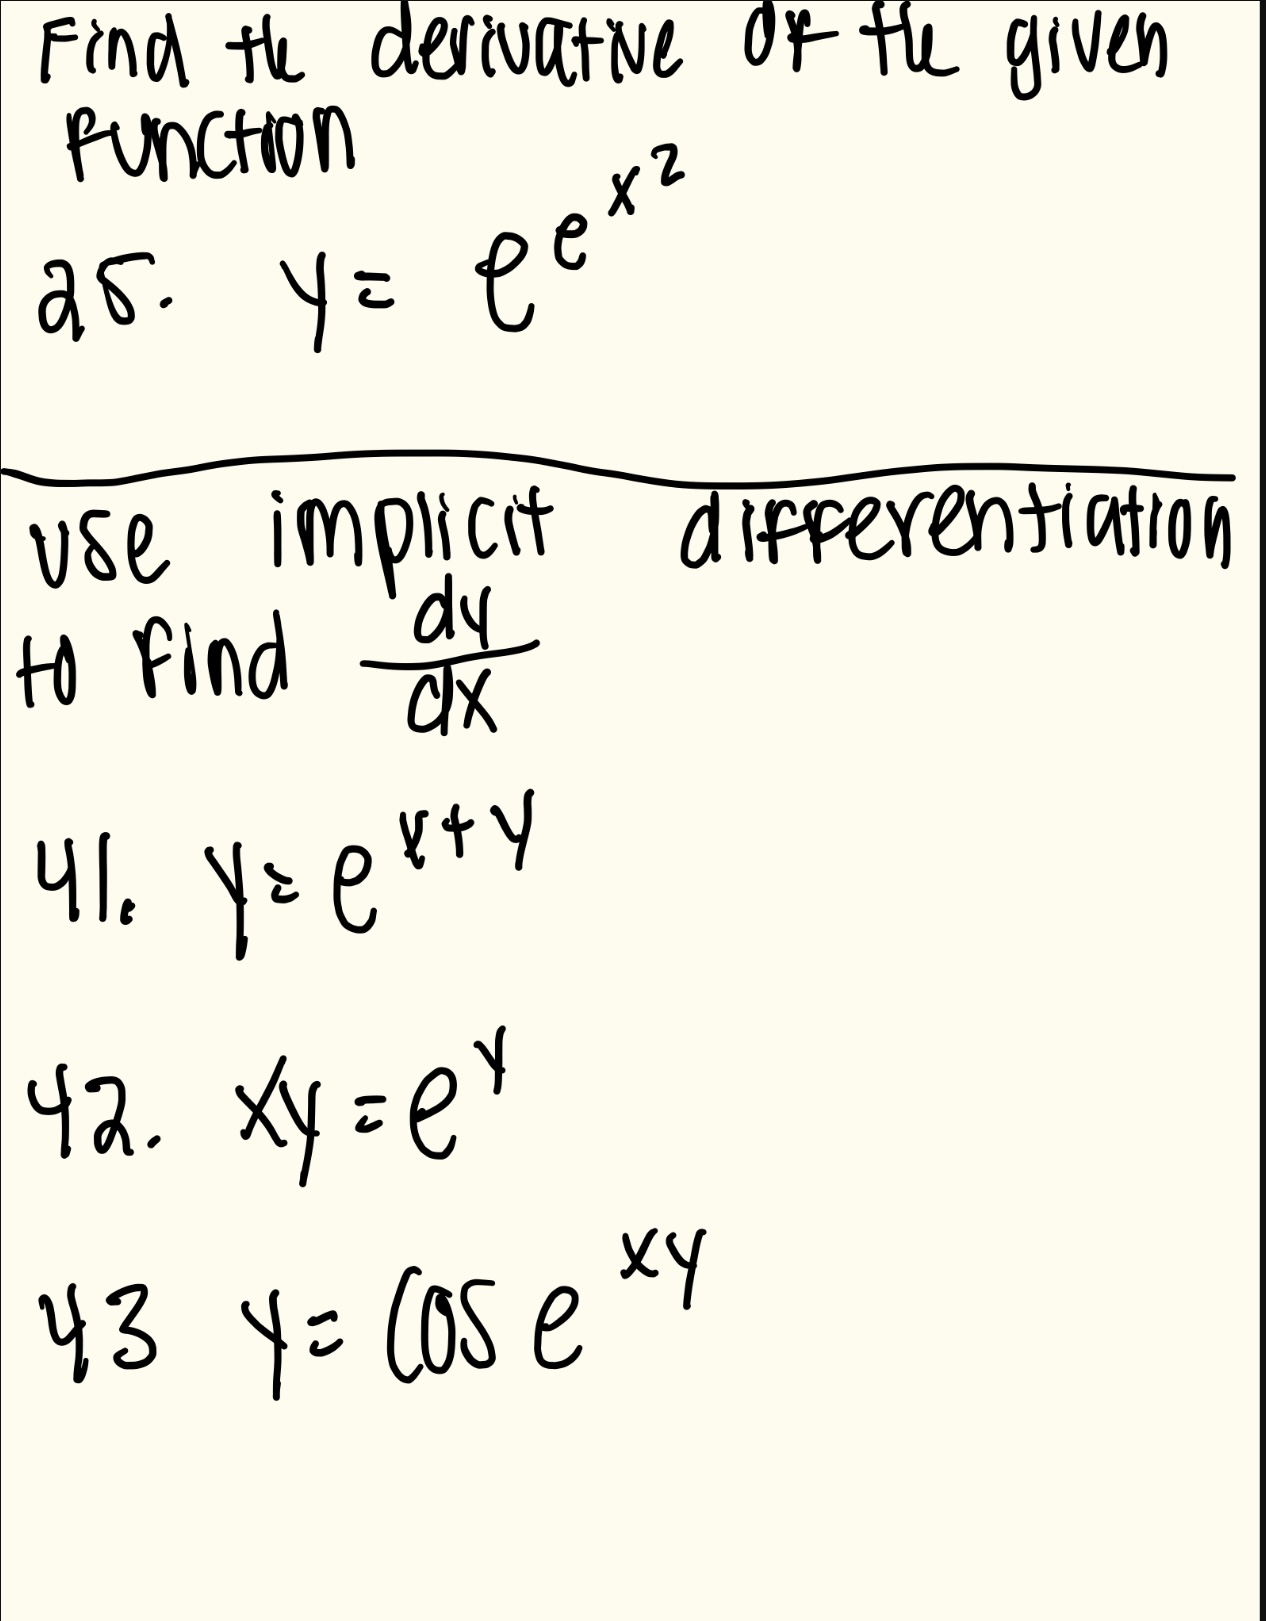 Find the derivative of the given
function
25. y = e^{e^{x^2}}
use implicit differentiation
to find dy/dx
41. y = e^{x+y}
42. xy = e^y
43 y = cos e^{xy}